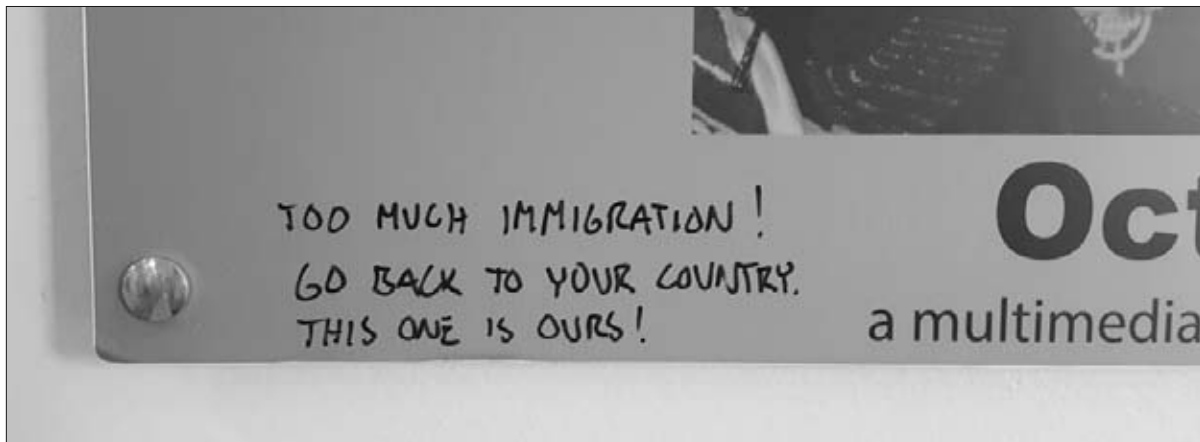 TOO MUCH IMMIGRATION!
GO BACK TO YOUR COUNTRY.
THIS ONE IS OURS!
Oct
a multimedia